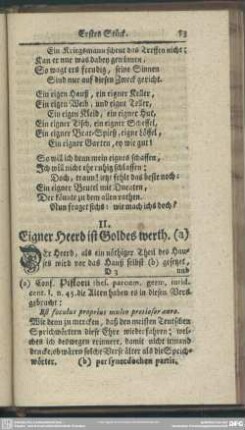 Erstes Stück. 53
Ein Kriegsmann scheut das Treffen nicht;
Kan er nur was dabey gewinnen,
So wagt ers freudig, seine Sinnen
Sind nur auf diesen Zweck gericht.
Ein eigen Hauß, ein eigner Keller,
Ein eigen Weib, und eigne Teller,
Ein eigen Kleid, ein eigner Hut,
Ein eigner Tisch, ein eigner Scheffel,
Ein eigner Brat-Spieß, eigne Löffel,
Ein eigner Garten, ey wie gut!
So will ich denn mein eignes schaffen,
Ich will nicht ehe ruhig schlaffen;
Doch, traun! jetzt fehlt das beste noch:
Ein eigner Beutel mit Ducaten,
Der könte zu dem allen rathen.
Nun fraget sichs: wie mach ichs doch?
II.
Eigner Heerd ist Goldes werth. (a)
Der Heerd, als ein nöthiger Theil des Hau-
ses wird vor das Hauß selbst (b) gesetzt,
D 3 und
(a) Conf. Pistorii thes. paroem. germ. iurid.
cent. I, n. 45. die Alten haben es in diesen Vers
gebracht:
Est foculus proprius multo pretiosior auro.
Wie denn zu mercken, daß den meisten Teutschen
Sprichwörtern diese Ehre wiederfahren; wel-
ches ich deswegen erinnere, damit nicht iemand
dencke, ob wären solche Verse älter als die Sprich-
wörter. (b) per synecdochen partis,